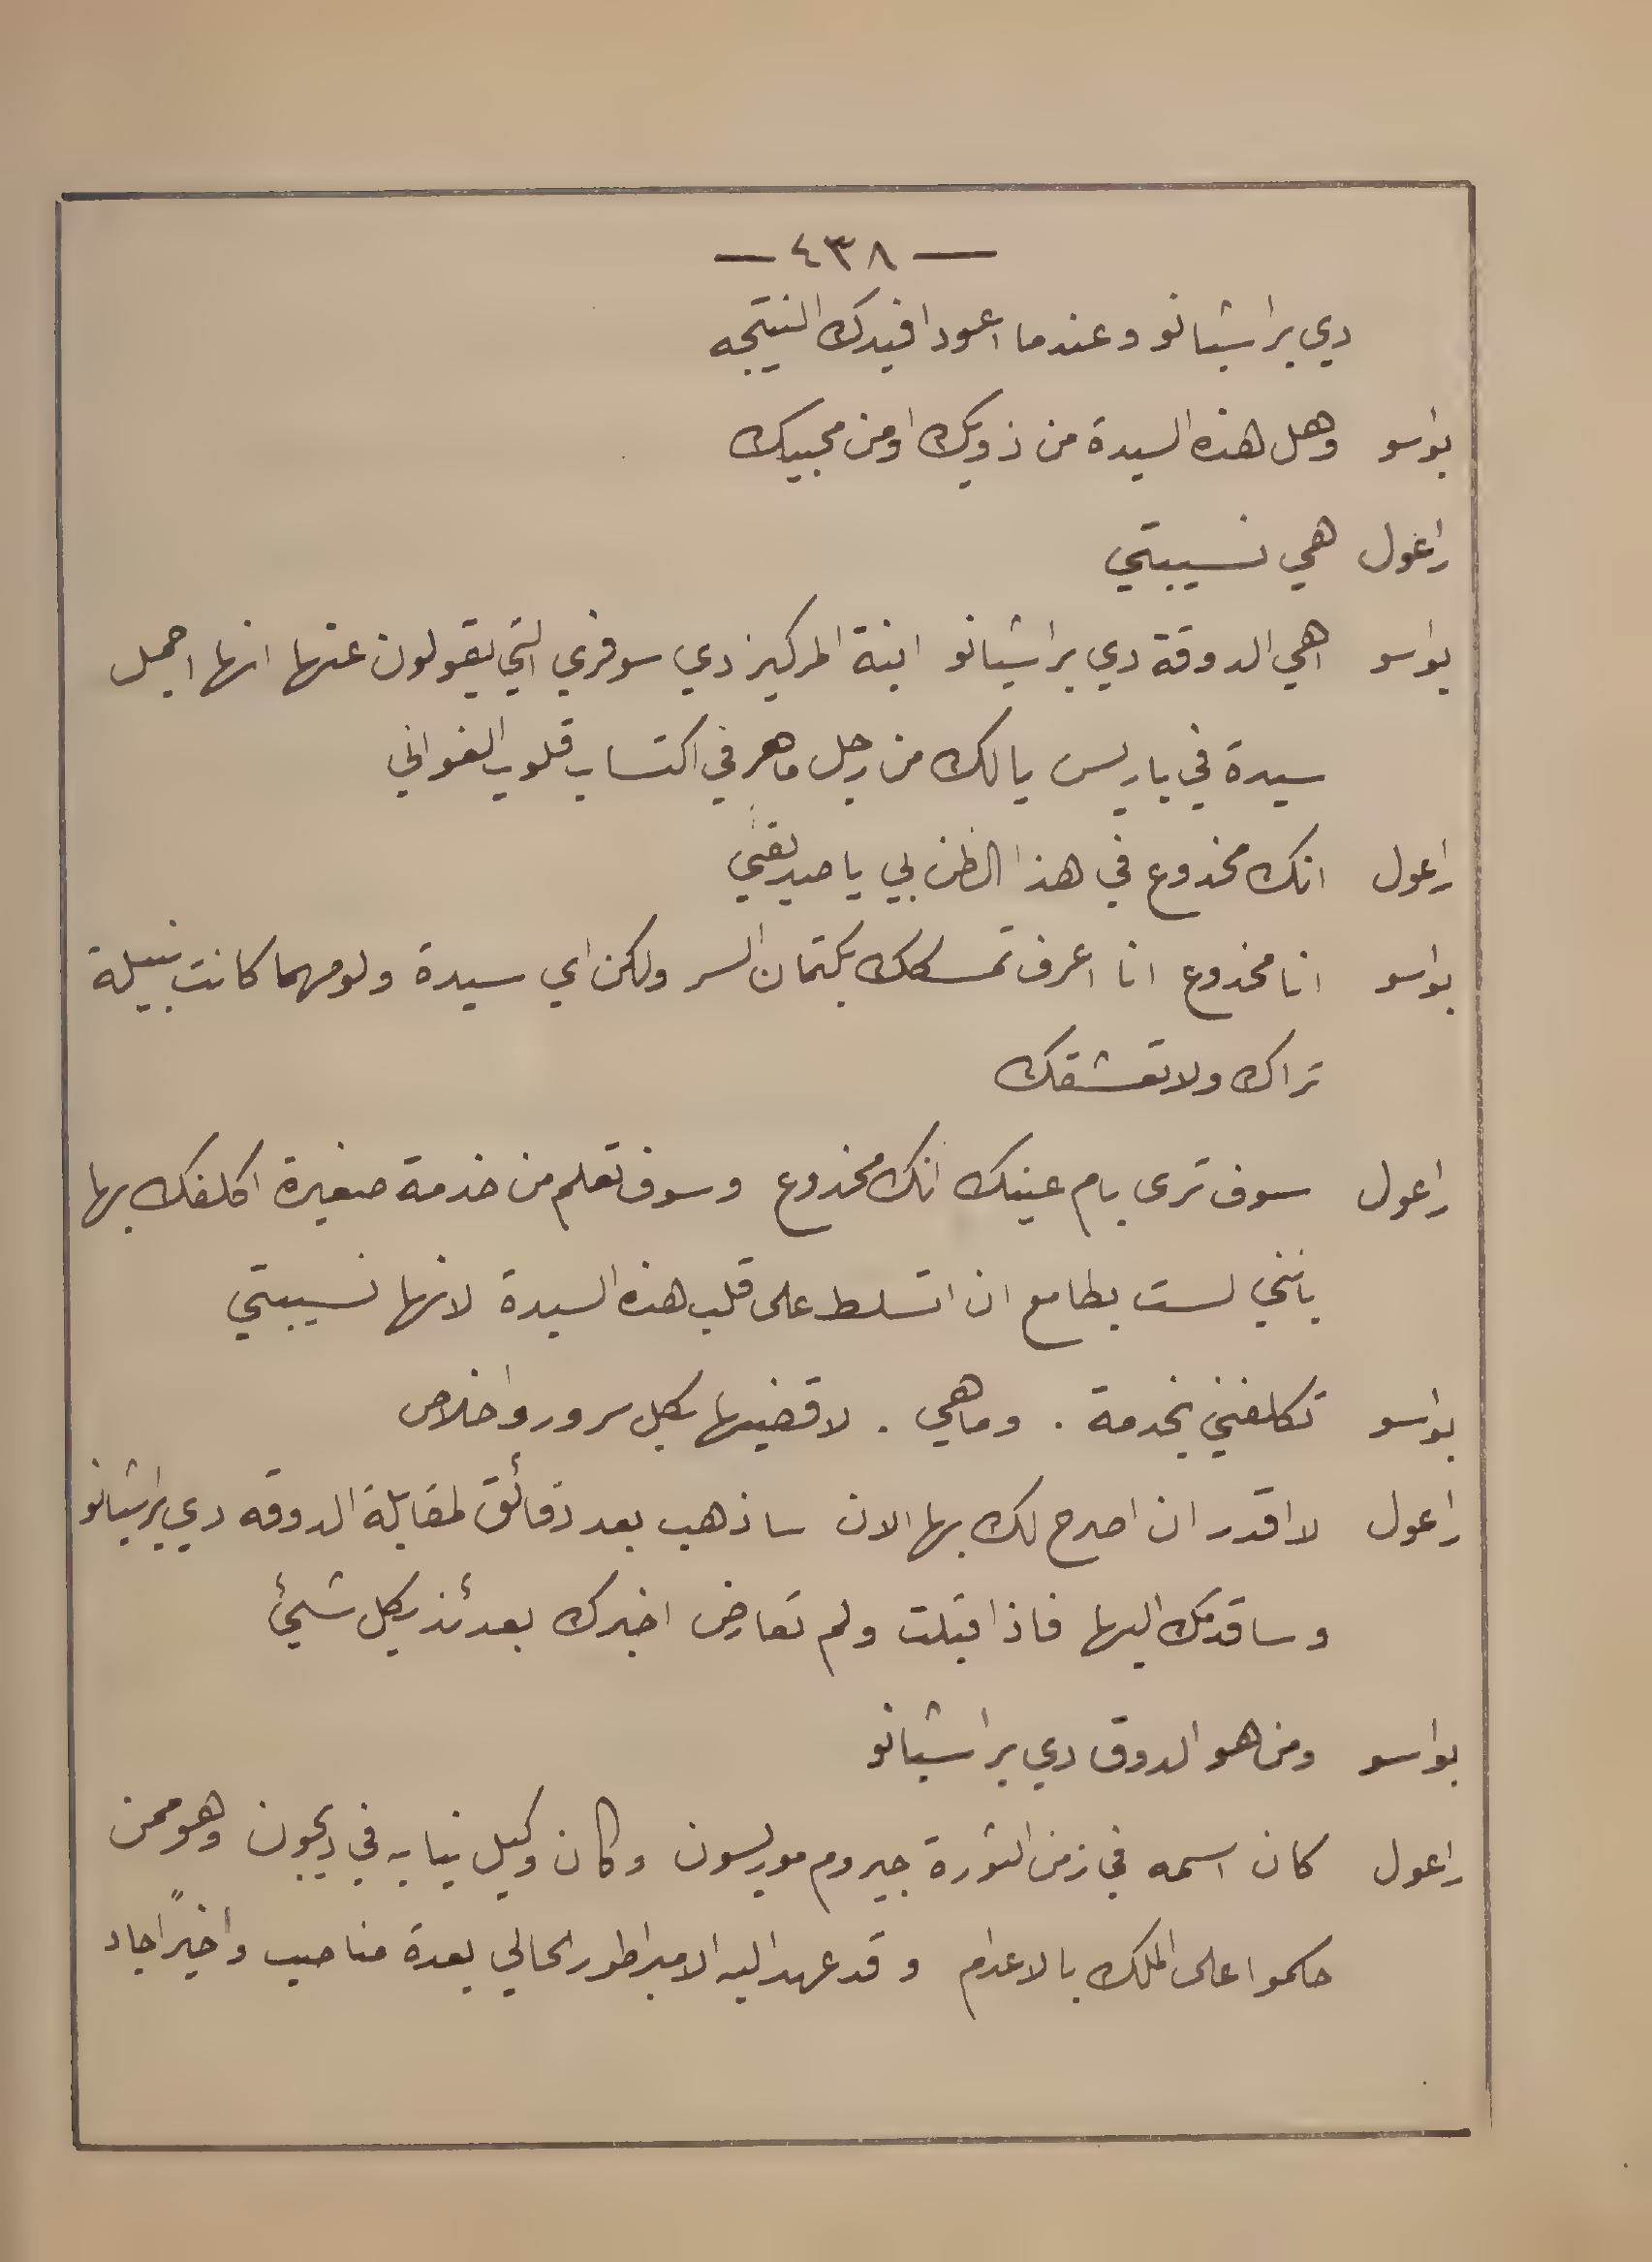 — ٤٣٨ —
دي براشيانو وعندما اعود افيدك النتيجه
بواسو وهل هذه السيدة من ذويك او من محبيك
راعول هي نسيبتي
بواسو اهي الدوقة دي براشيانو ابنة المركيز دي سوفري التي يقولون عنها انها اجمل
سيدة في باريس يالك من رجل ماهر في اكتساب قلوب الغواني
راعول انك مخدوع في هذا الظن بي يا صديقي
بواسو انا مخدوع انا اعرف تمسكك بكتمان السر ولكن اي سيدة ولو مهما كانت نبيلة
تراك ولا تعشقك
راعول سوف ترى بام عينك انك مخدوع وسوف تعلم من خدمة صغيرة اكلفك بها
بانني لست بطامع ان اتسلط على قلب هذه السيدة لانها نسيبتي
بواسو تكلفني بخدمة . وما هي . لاقضيها بكل سرور واخلاص
راعول لا اقدر ان اصرح لك بها الان ساذهب بعد دقائق لمقابلة الدوقه دي براشيانو
وساقدمك اليها فاذا قبلت ولم تعارض اخبرك بعدئذ بكل شيئ
بواسو ومن هو الدوق دي براشيانو
راعول كان اسمه في زمن الثورة جيروم موريسون وكان وكيل نيابه في ديجون وهو ممن
حكموا على الملك بالاعدام وقد عهد اليه الامبراطور الحالي بعدة مناصب واخيرًا جاد